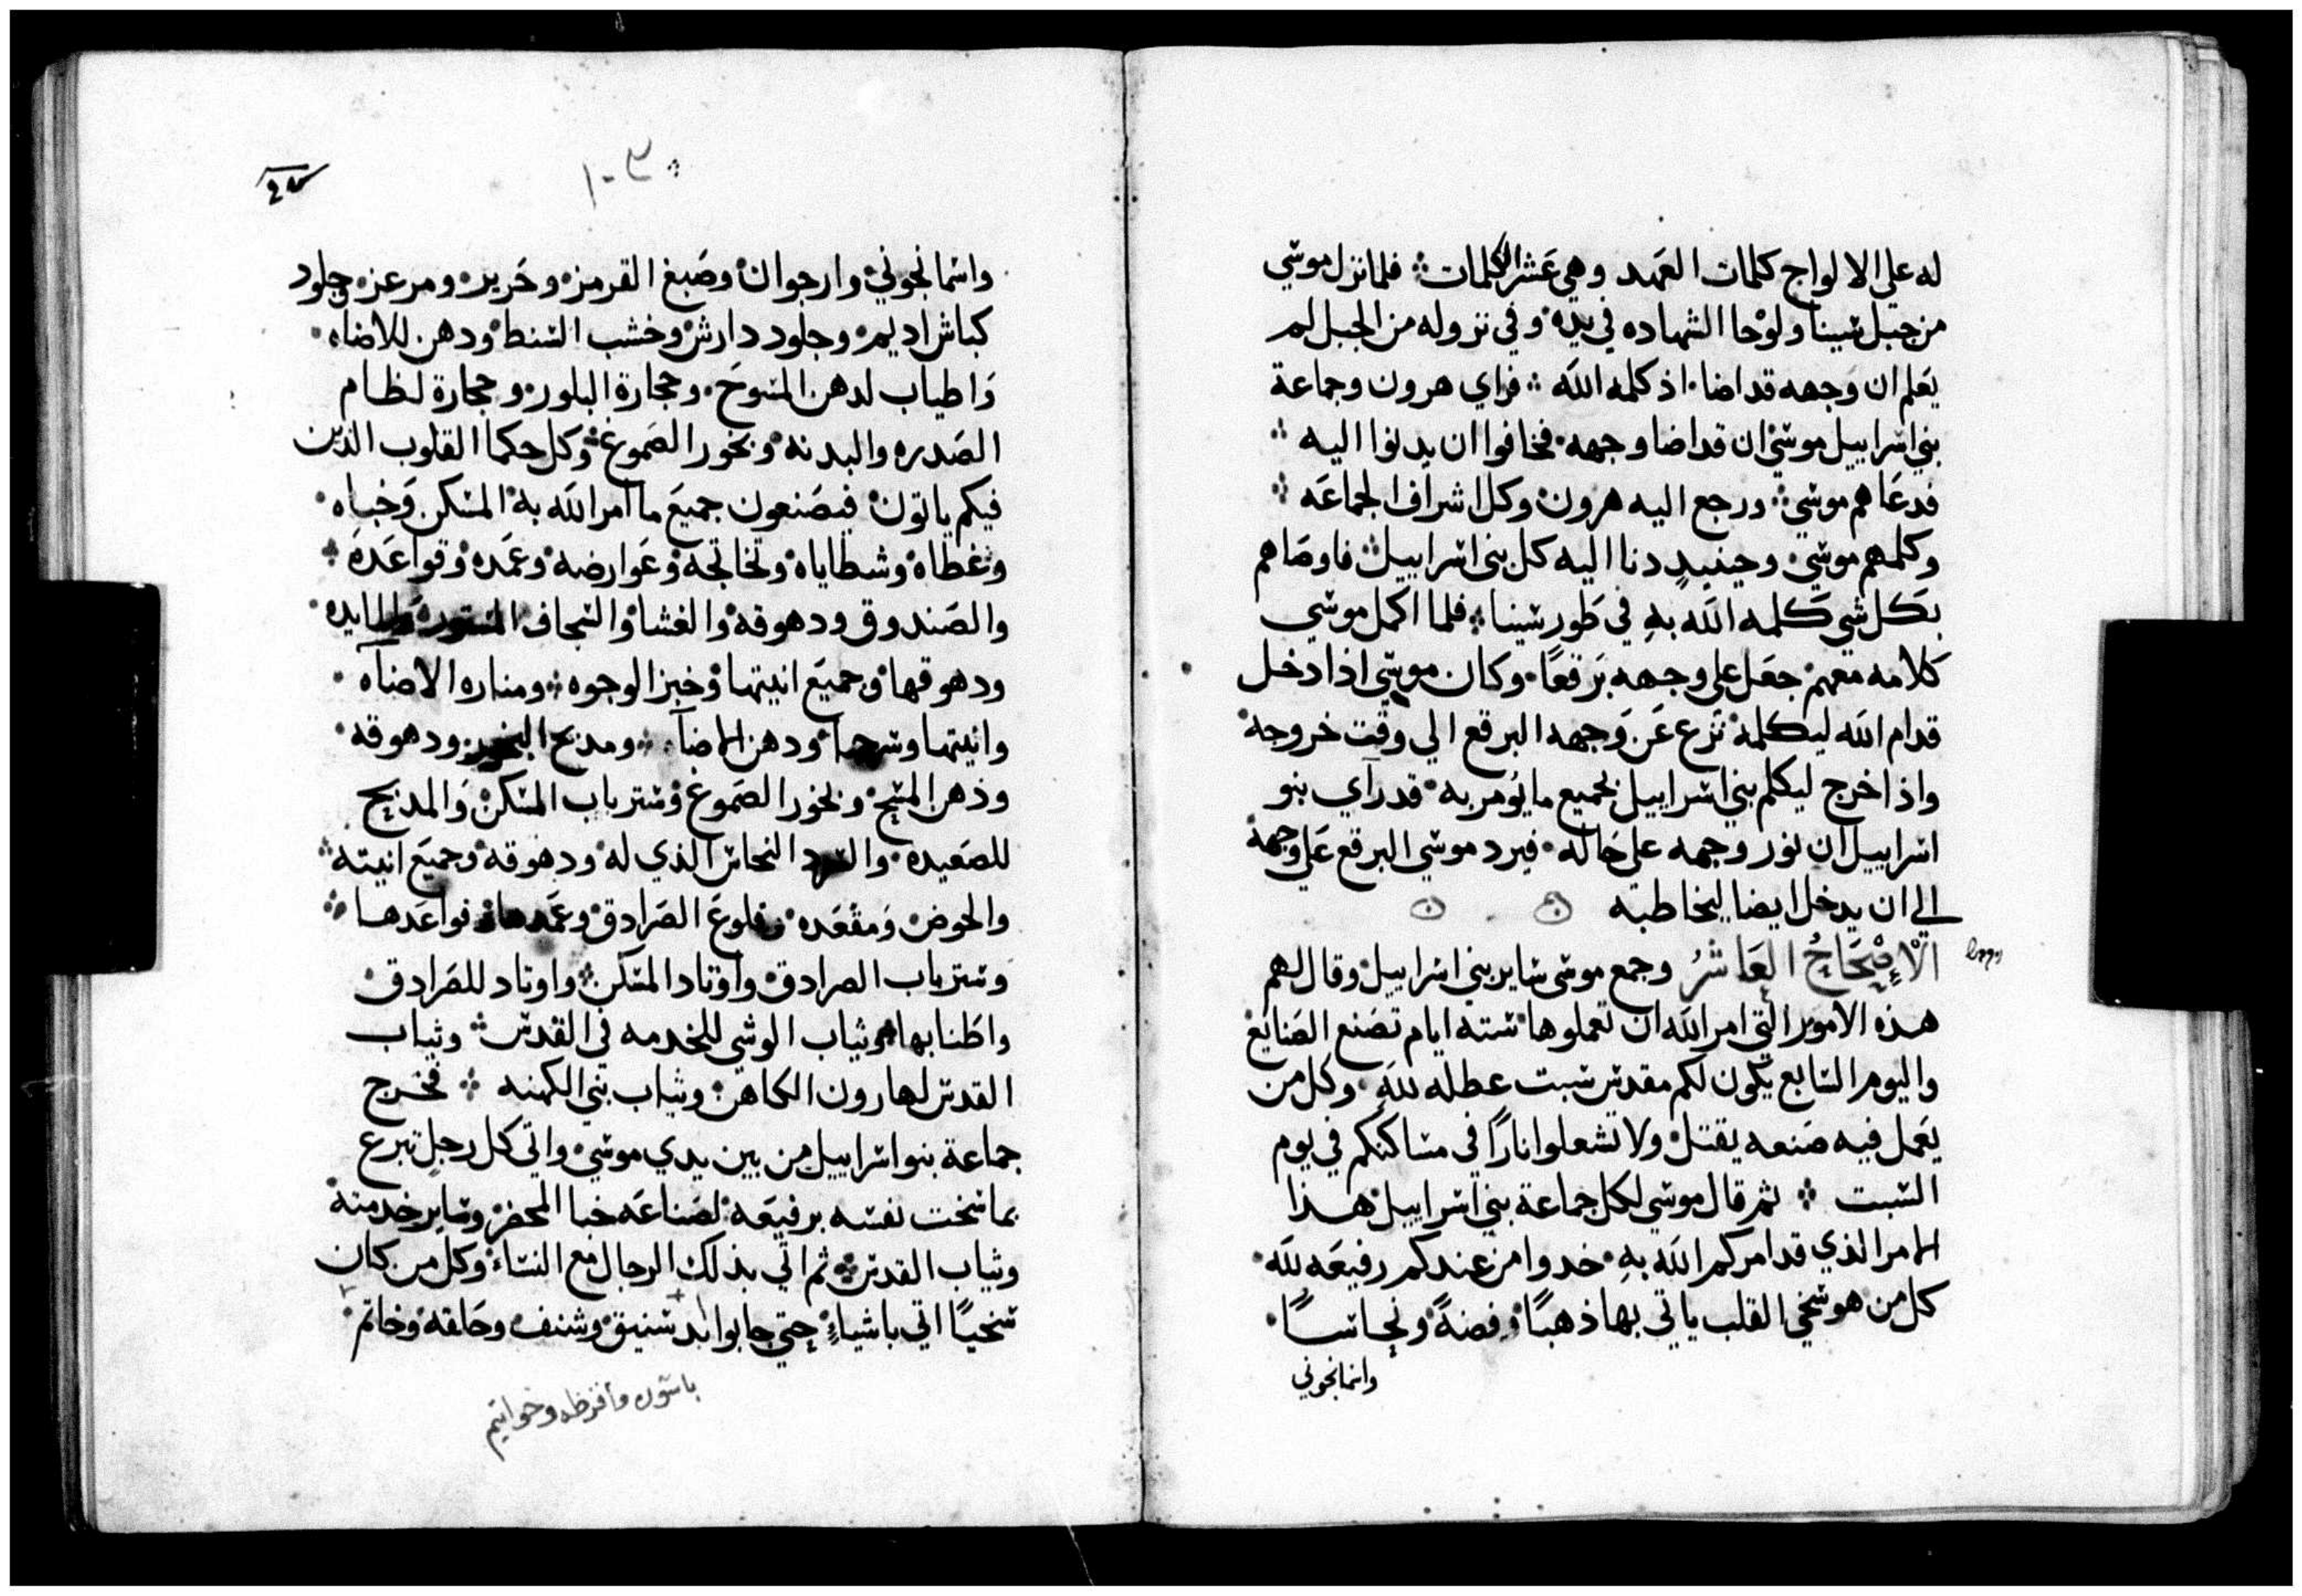 له علي الالواح كلمات العهد وهي عشر الكلمات فلما نزل موسي
من جبل سينا ولوحا الشهاده في يده وفي نزوله من الجبل لم
يعلم ان وجهه قد اضا اذ كلمه الله فراي هرون وجماعة
بني اسراييل موسي ان قد اضا وجهه فخافوا ان يدنوا اليه
فدعاهم موسي ورجع اليه هرون وكل اشراف الجماعه
وكلمهم موسي وحينيدٍ دنا اليه كل بني اسراييل فاوصاهم
بكل شي كلمه الله بهِ في طور سينا فلما اكمل موسي
كلامه معهم جعل علي وجهه برقعًا وكان موسي اذا دخل
قدام الله ليكلمه نزع عن وجهه البرقع الي وقت خروجه
واذا خرج ليكلم بني اسراييل بجميع ما يُومر به قد رآي بنو
اسراييل ان نور وجهه علي حاله فيرد موسي البرقع علي وجهه
الي ان يدخل ايضا ليخاطبه
الْاصْحَاحُ العَاشرُ وجمع موسي ساير بني اسراييل وقال لهم
هذه الامور التي امر الله ان تعملوها ستة ايام تصنع الصنايع
واليوم السابع يكون لكم مقدس سبت عطله للهِ وكل من
يعمل فيه صنعه يقتل ولا تشعلوا نارًا في مساكنكم في يوم
السبت ثم قال موسي لكل جماعة بني اسراييل هذا
الامر الذي قد امركم الله بهِ خدوا من عندكم رفيعه لله
كل من هو سخي القلب ياتي بها ذهبًا وفضةً ونحاسًا
واسمانجوني
١٠٣
واسمانجوني وارجوان وصبغ القرمز وحرير ومرعز وجلود
كباش اديم وجلود دارش وخشب السنط ودهن للاضاه
واطياب لدهن المسوح وحجارة البلور وحجارة لنظام
الصدره والبدنه وبخور الصموغ وكل حكما القلوب الذين
فيكم ياتون فيصنعون جميع ما امر الله به المسكن وخباه
وغطاه وشظاياه وتخاتجه وعوارضه وعمده وقواعده
والصندوق ودهوقه والغشا والسجاف المستوره والمايده
ودهوقها وجميع انيتها وخبز الوجوه ومناره الاضآه
وانيتها وسرجها ودهن الاضآه ومدبح البخور ودهوقه
ودهن المسح وبخور الصموغ وستر باب المسكن والمدبح
للصعيده والسرد النحاس الذي له ودهوقه وجميع انيته
والحوض ومقعده وقلوع الصرادق وعمدها وقواعدها
وستر باب الصرادق واوتاد المسكن واوتاد للصرادق
واطنابها وثياب الوشي للخدمه في القدس وثياب
القدس لهارون الكاهن وثياب بني الكهنه فخرج
جماعة بنو اسراييل من بين يدي موسي واتي كل رجلٍ تبرع
بما سخت نفسه برفيعه لصناعه خبا المحضر وساير خدمته
وثياب القدس ثم اتي بذلك الرجال مع النساء وكل من كان
سخيًا اتي باشياءٍ حتي جابوا بدستنيق وشنف وحلقه وخاتم
باسوره واقرطه وخواتيم